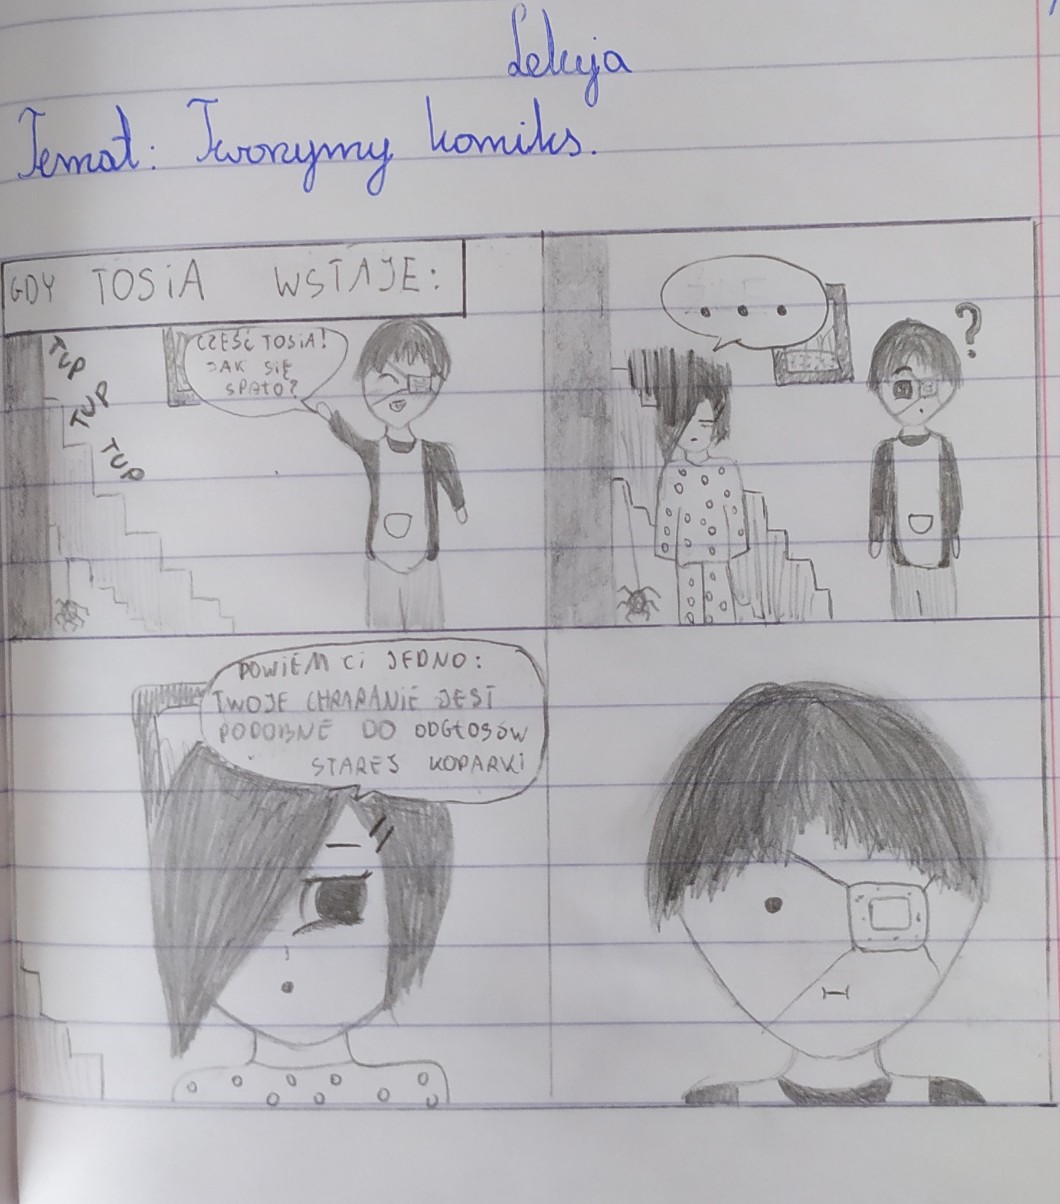 Lekcja
Temat: Tworzymy komiks.
GDY TOSIA WSTAJE:
TUP
TUP
TUP
CZEŚĆ TOSIA!
JAK SIĘ
SPAŁO?
...
?
POWIEM CI JEDNO:
TWOJE CHRAPANIE JEST
PODOBNE DO ODGŁOSÓW
STAREJ KOPARKI